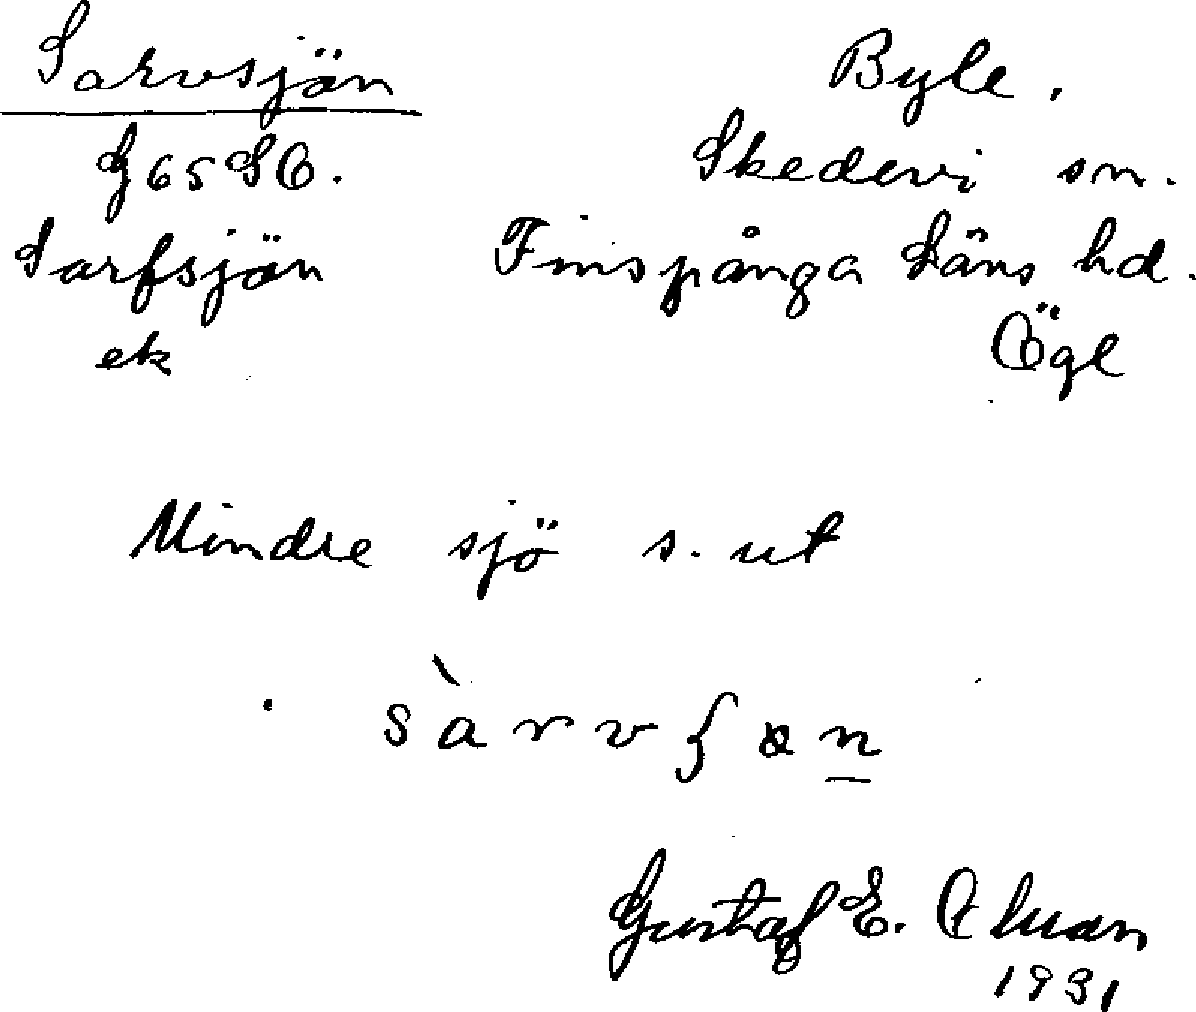 Sarvsjön
G 65 SO.
Sarfsjön
ek
Byle.
Skedevi sn.
Finspånga Läns hd.
Ögl
Mindre sjö s. ut
Gustaf E.
1931